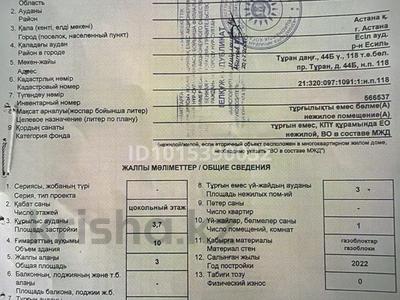 Область
2 Ауданы
Район
Астана қ.
3 Қала (кенті, елді мекені)
г. Астана
Город (поселок, населенный пункт)
Есіл ауд.
4 Қаладағы аудан
р-н Есиль
Район в городе
Тұран даңғ., 44Б ү., 118 т.е.бөл.
5 Мекен-жайы
пр. Туран, д. 44Б, н.п. 118
Адрес
6 Кадастрлық нөмір
21:320:097:1091:1:н.п.118
Кадастровый номер
7 Түгендеу нөмір
566537
Инвентарный номер
8 Мақсат арналуы(жоспар бойынша литер)
тұрғылықты емес бөлме(А)
Целевое назначение (литер по плану)
нежилое помещение(А)
9 Қордың санаты
тұрғын емес, КПТ құрамында ЕО
Категория фонда
нежилой, ВО в составе МЖД
необходимо указать "ВО в составе МЖД")
ID1015390052
ЖАЛПЫ МӘЛІМЕТТЕР / ОБЩИЕ СВЕДЕНИЯ
1. Сериясы, жобаның түрі -
Серия, тип проекта
2. Қабат саны цокольный этаж
Число этажей
3. Құрылыс ауданы 3,7
Площадь застройки
4. Ғимараттың ауқымы 10
Объем здания
5. Жалпы алаңы 3
Общая площадь
6. Балконның, лоджияның және т.б. алаңы -
Площадь балкона, лоджии ж.б.
8. Тұрғын емес үй-жайдың ауданы 3
Площадь нежилых пом-ий
9. Пәтер саны -
Число квартир
10. Үй-жайлар, бөлмелер саны 1
Число помещений, комнат
11. Қабырға материалы газоблоктар
Материал стен газоблоки
12. Салынған жылы 2022
Год постройки
13. Табиғи тозу 0
Физический износ
krisha.kz